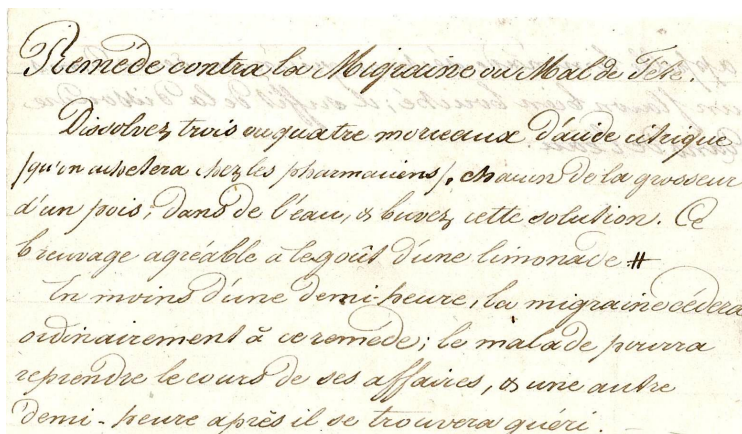 Remède contra la Migraine ou Mal de Tête.
Dissolvez trois ou quatre morceaux d'acide citrique
/qu'on achetera chez les pharmaciens/, chacun de la grosseur
d'un pois, dans de l'eau, & buvez cette solution. Ce
breuvage agréable à le goût d'une limonade #
En moins d'une demi-heure, la migraine cédera
ordinairement à ce remède; le malade pourra
reprendre le cours de ses affaires, & une autre
demi-heure après il se trouvera guéri.